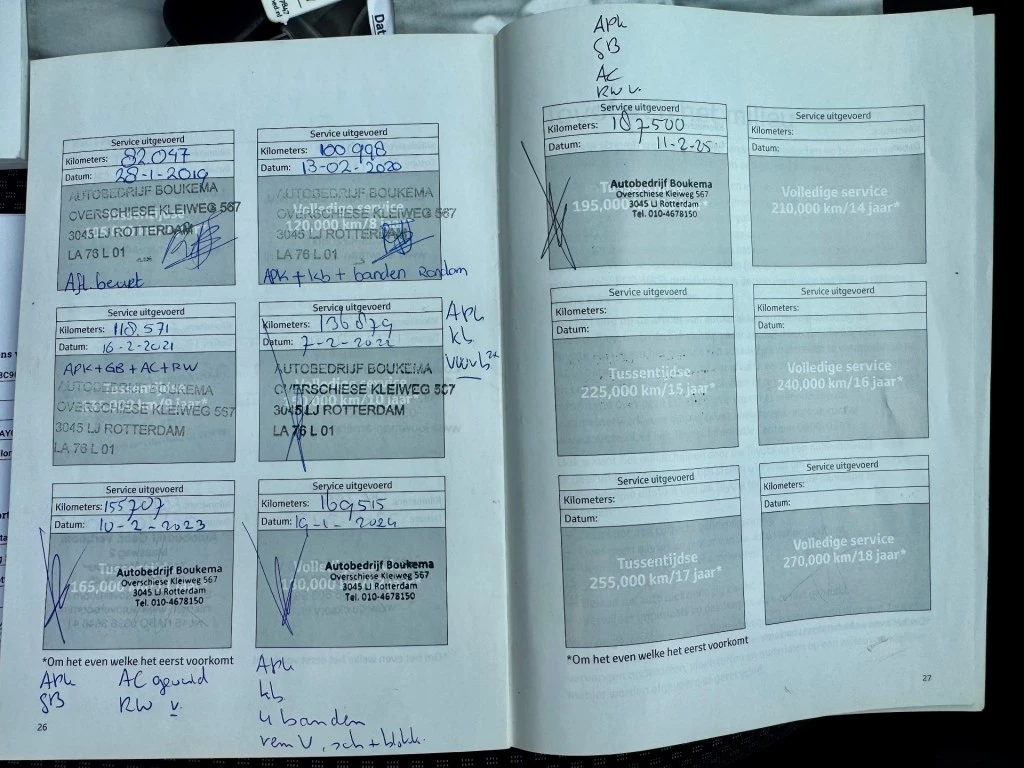 Service uitgevoerd
Kilometers: 82047
Datum: 28-1-2019
AUTOBEDRIJF BOUKEMA
OVERSCHIESE KLEIWEG 567
3045 LJ ROTTERDAM
LA 76 L 01
Service uitgevoerd
Kilometers: 100 998
Datum: 13-02-2020
Volledige service
120,000 km/8
AUTOBEDRIJF BOUKEMA
OVERSCHIESE KLEIWEG 567
3045 LJ ROTTERDAM
LA 76 L 01
APK + kb + banden Rondom
Service uitgevoerd
Kilometers: 118.571
Datum: 16-2-2021
APK+GB+AC+RW
Tussentijdse
km/9 jaar*
AUTOBEDRIJF BOUKEMA
OVERSCHIESE KLEIWEG 567
3045 LJ ROTTERDAM
LA 76 L 01
Service uitgevoerd
Kilometers: 136879
Datum: 7-2-2022
km/10 jaar*
AUTOBEDRIJF BOUKEMA
OVERSCHIESE KLEIWEG 567
3045 LJ ROTTERDAM
LA 76 L 01
Apk
kb
Service uitgevoerd
Kilometers: 155707
Datum: 10-2-2023
165,000
Autobedrijf Boukema
Overschiese Kleiweg 567
3045 LJ Rotterdam
Tel. 010-4678150
Service uitgevoerd
Kilometers: 169515
Datum: 19-1-2024
Autobedrijf Boukema
Overschiese Kleiweg 567
3045 LJ Rotterdam
Tel. 010-4678150
*Om het even welke het eerst voorkomt
Apk
gB
AC gevuld
RW v
Apk
kb
4 banden
rem V, sch + blokk.
26
Apk
gB
AC
RW v.
Service uitgevoerd
Kilometers: 187500
Datum: 11-2-25
195,000
Autobedrijf Boukema
Overschiese Kleiweg 567
3045 LJ Rotterdam
Tel. 010-4678150
Service uitgevoerd
Kilometers:
Datum:
Volledige service
210,000 km/14 jaar*
Service uitgevoerd
Kilometers:
Datum:
Tussentijdse
225,000 km/15 jaar*
Service uitgevoerd
Kilometers:
Datum:
Volledige service
240,000 km/16 jaar*
Service uitgevoerd
Kilometers:
Datum:
Tussentijdse
255,000 km/17 jaar*
Service uitgevoerd
Kilometers:
Datum:
Volledige service
270,000 km/18 jaar*
*Om het even welke het eerst voorkomt
27